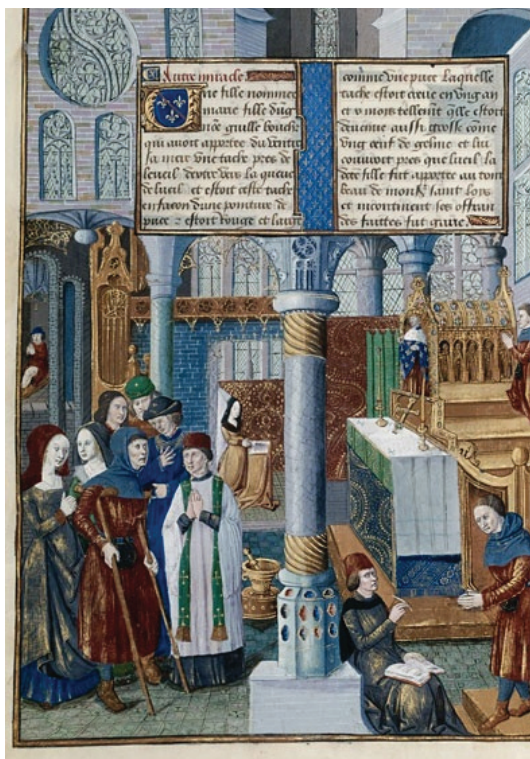 Autre miracle
Une fille nommee
marie fille dung
nōe guille bouche
qui avoit apporte du ventre
sa mere vne tache pres de
leueil devers la queue
de lueil et estoit ceste tache
en facon dune pointure de
puce z estoit rouge et large
comme vne puce laquelle
tache estoit creue en vng an
et v moys tellemēt q̄lle estoit
deuenue aussi grosse come
vng oeuf de geline et lui
couuroit pres que lueil la
dcte fille fut apportee au tom
beau de mons̄ saint loys
et incontinent ses offran
des faittes fut garie.